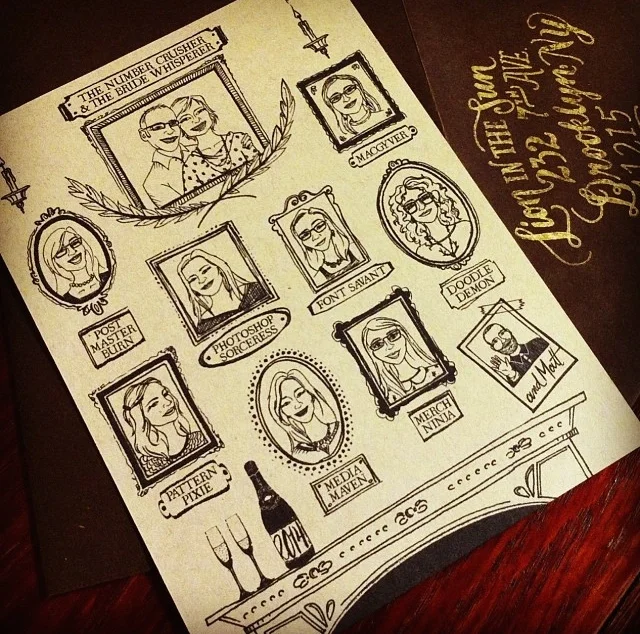 THE NUMBER CRUSHER
& THE BRIDE WHISPERER
MACGYVER
POST
MASTER
BURN
PHOTOSHOP
SORCERESS
FONT SAVANT
DOODLE
DEMON
PATTERN
PIXIE
MEDIA
MAVEN
MERCH
NINJA
and Matt
2014
Lion IN THE Sun
232 7th AVE
Brooklyn NY
11215